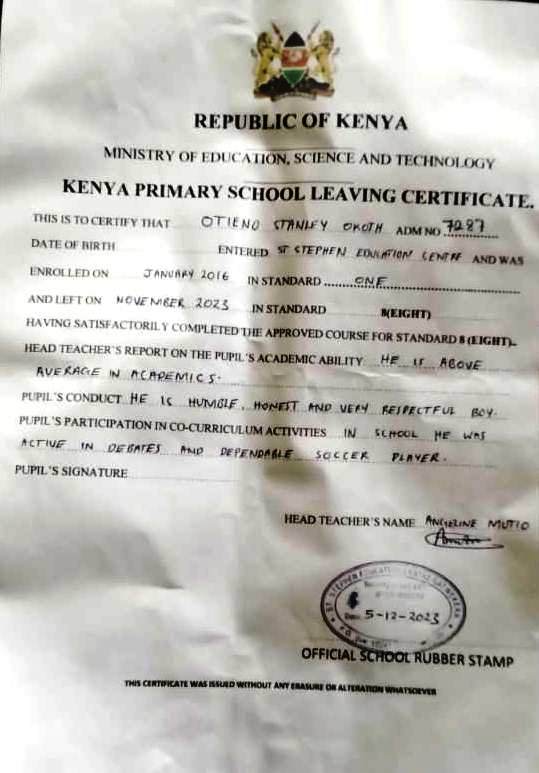 REPUBLIC OF KENYA
MINISTRY OF EDUCATION, SCIENCE AND TECHNOLOGY
KENYA PRIMARY SCHOOL LEAVING CERTIFICATE.
THIS IS TO CERTIFY THAT OTIENO STANLEY OKOTH ADM NO 7287
DATE OF BIRTH ENTERED ST STEPHEN EDUCATION CENTRE AND WAS
ENROLLED ON JANUARY 2016 IN STANDARD ONE
AND LEFT ON NOVEMBER 2023 IN STANDARD 8(EIGHT)
HAVING SATISFACTORILY COMPLETED THE APPROVED COURSE FOR STANDARD 8 (EIGHT).
HEAD TEACHER'S REPORT ON THE PUPIL'S ACADEMIC ABILITY HE IS ABOVE
AVERAGE IN ACADEMICS.
PUPIL'S CONDUCT HE IS HUMBLE, HONEST AND VERY RESPECTFUL BOY.
PUPIL'S PARTICIPATION IN CO-CURRICULUM ACTIVITIES IN SCHOOL HE WAS
ACTIVE IN DEBATES AND DEPENDABLE SOCCER PLAYER.
PUPIL'S SIGNATURE
HEAD TEACHER'S NAME ANGELINE MUTIO
ST. STEPHEN EDUCATION CENTRE
5-12-2023
OFFICIAL SCHOOL RUBBER STAMP
THIS CERTIFICATE WAS ISSUED WITHOUT ANY ERASURE OR ALTERATION WHATSOEVER